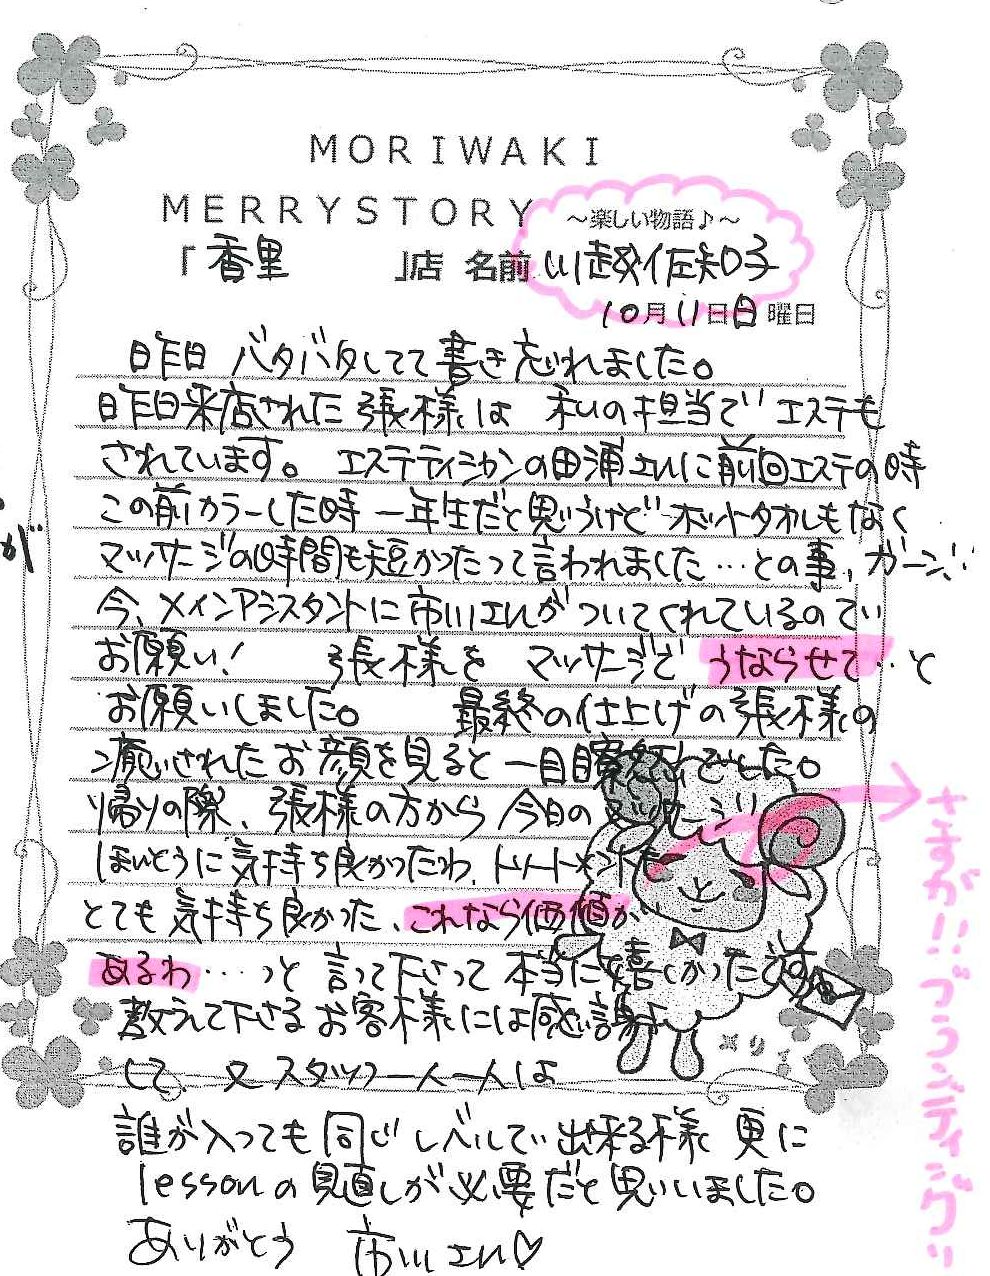 MORIWAKI
MERRYSTORY
～楽しい物語♪～
「香里　　　」店 名前 川越佐知子
10月11日日曜日
昨日 バタバタしてて書き忘れました。
昨日来店された張様は 私の担当でエステも
されています。エステティシャンの田浦さんに前回エステの時
この前カラーした時 一年生だと思うけどホットタオルもなく
マッサージの時間も短かったって言われました…との事、ガーン
今、メインアシスタントに市川さんがついてくれているので
お願い! 張様を マッサージでうならせて…と
お願いしました。 最終の仕上げの張様の
癒されたお顔を見ると一目瞭然でした。
帰りの際、張様の方から今日のマッサージ
ほんとうに気持ち良かったわ、トリートメントも
とても気持ち良かった、これなら価値が
あるわ…っと言って下さって本当に嬉しかったです
教えて下さるお客様には感謝
して、又スタッフ一人一人は
誰が入っても同じレベルで出来る様 更に
lessonの見直しが必要だと思いました。
ありがとう 市川さん♡
メリィ
さすが!!ブランディング!!
が